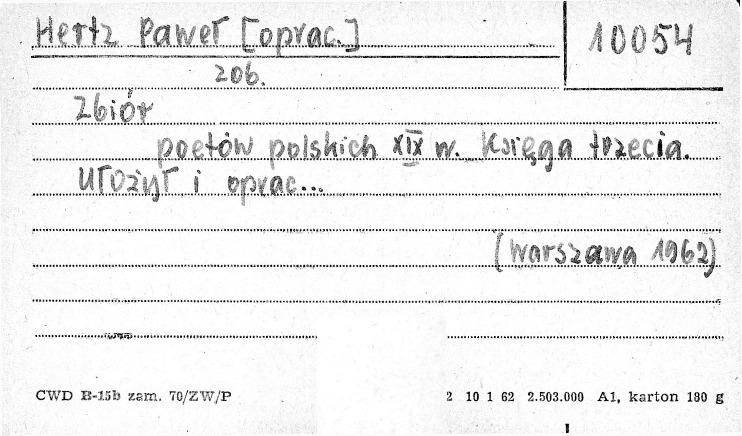 Hertz Paweł [oprac.]
10054
zob.
Zbiór
poetów polskich XIX w. Księga trzecia.
Ułożył i oprac...
(Warszawa 1962)
CWD B-15b zam. 70/ZW/P
2 10 1 62 2.503.000 A1, karton 180 g